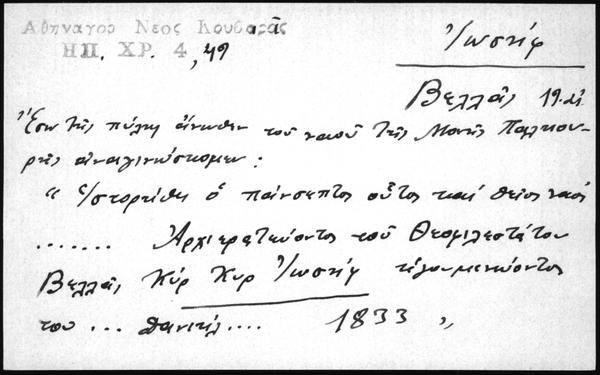 Αθηναγορ Νεος Κουβαρᾶς
ΗΠ. ΧΡ. 4, 49
Ἰωσήφ
Βελλᾶς 19 αι.
Ἔσω τῆς πύλης ἄνωθεν τοῦ ναοῦ τῆς Μονῆς Παλιου-
ρῆς ἀναγινώσκομεν :
" Ἱστορήθη ὁ πάνσεπτος οὗτος καί θεῖος ναός
....... Ἀρχιερατεύοντος τοῦ Θεοφιλεστάτου
Βελλᾶς Κύρ Κυρ Ἰωσήφ ἡγουμενεύοντος
του ... Δανιήλ.... 1833 "